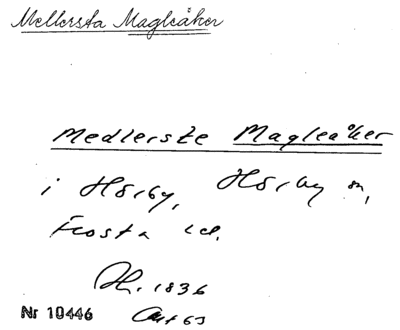 Mellersta Magleåker
Medlerste Magleåker
i Hörby, Hörby sn,
Frosta hd.
Lh. 1836
Nr 10446 Akt 63